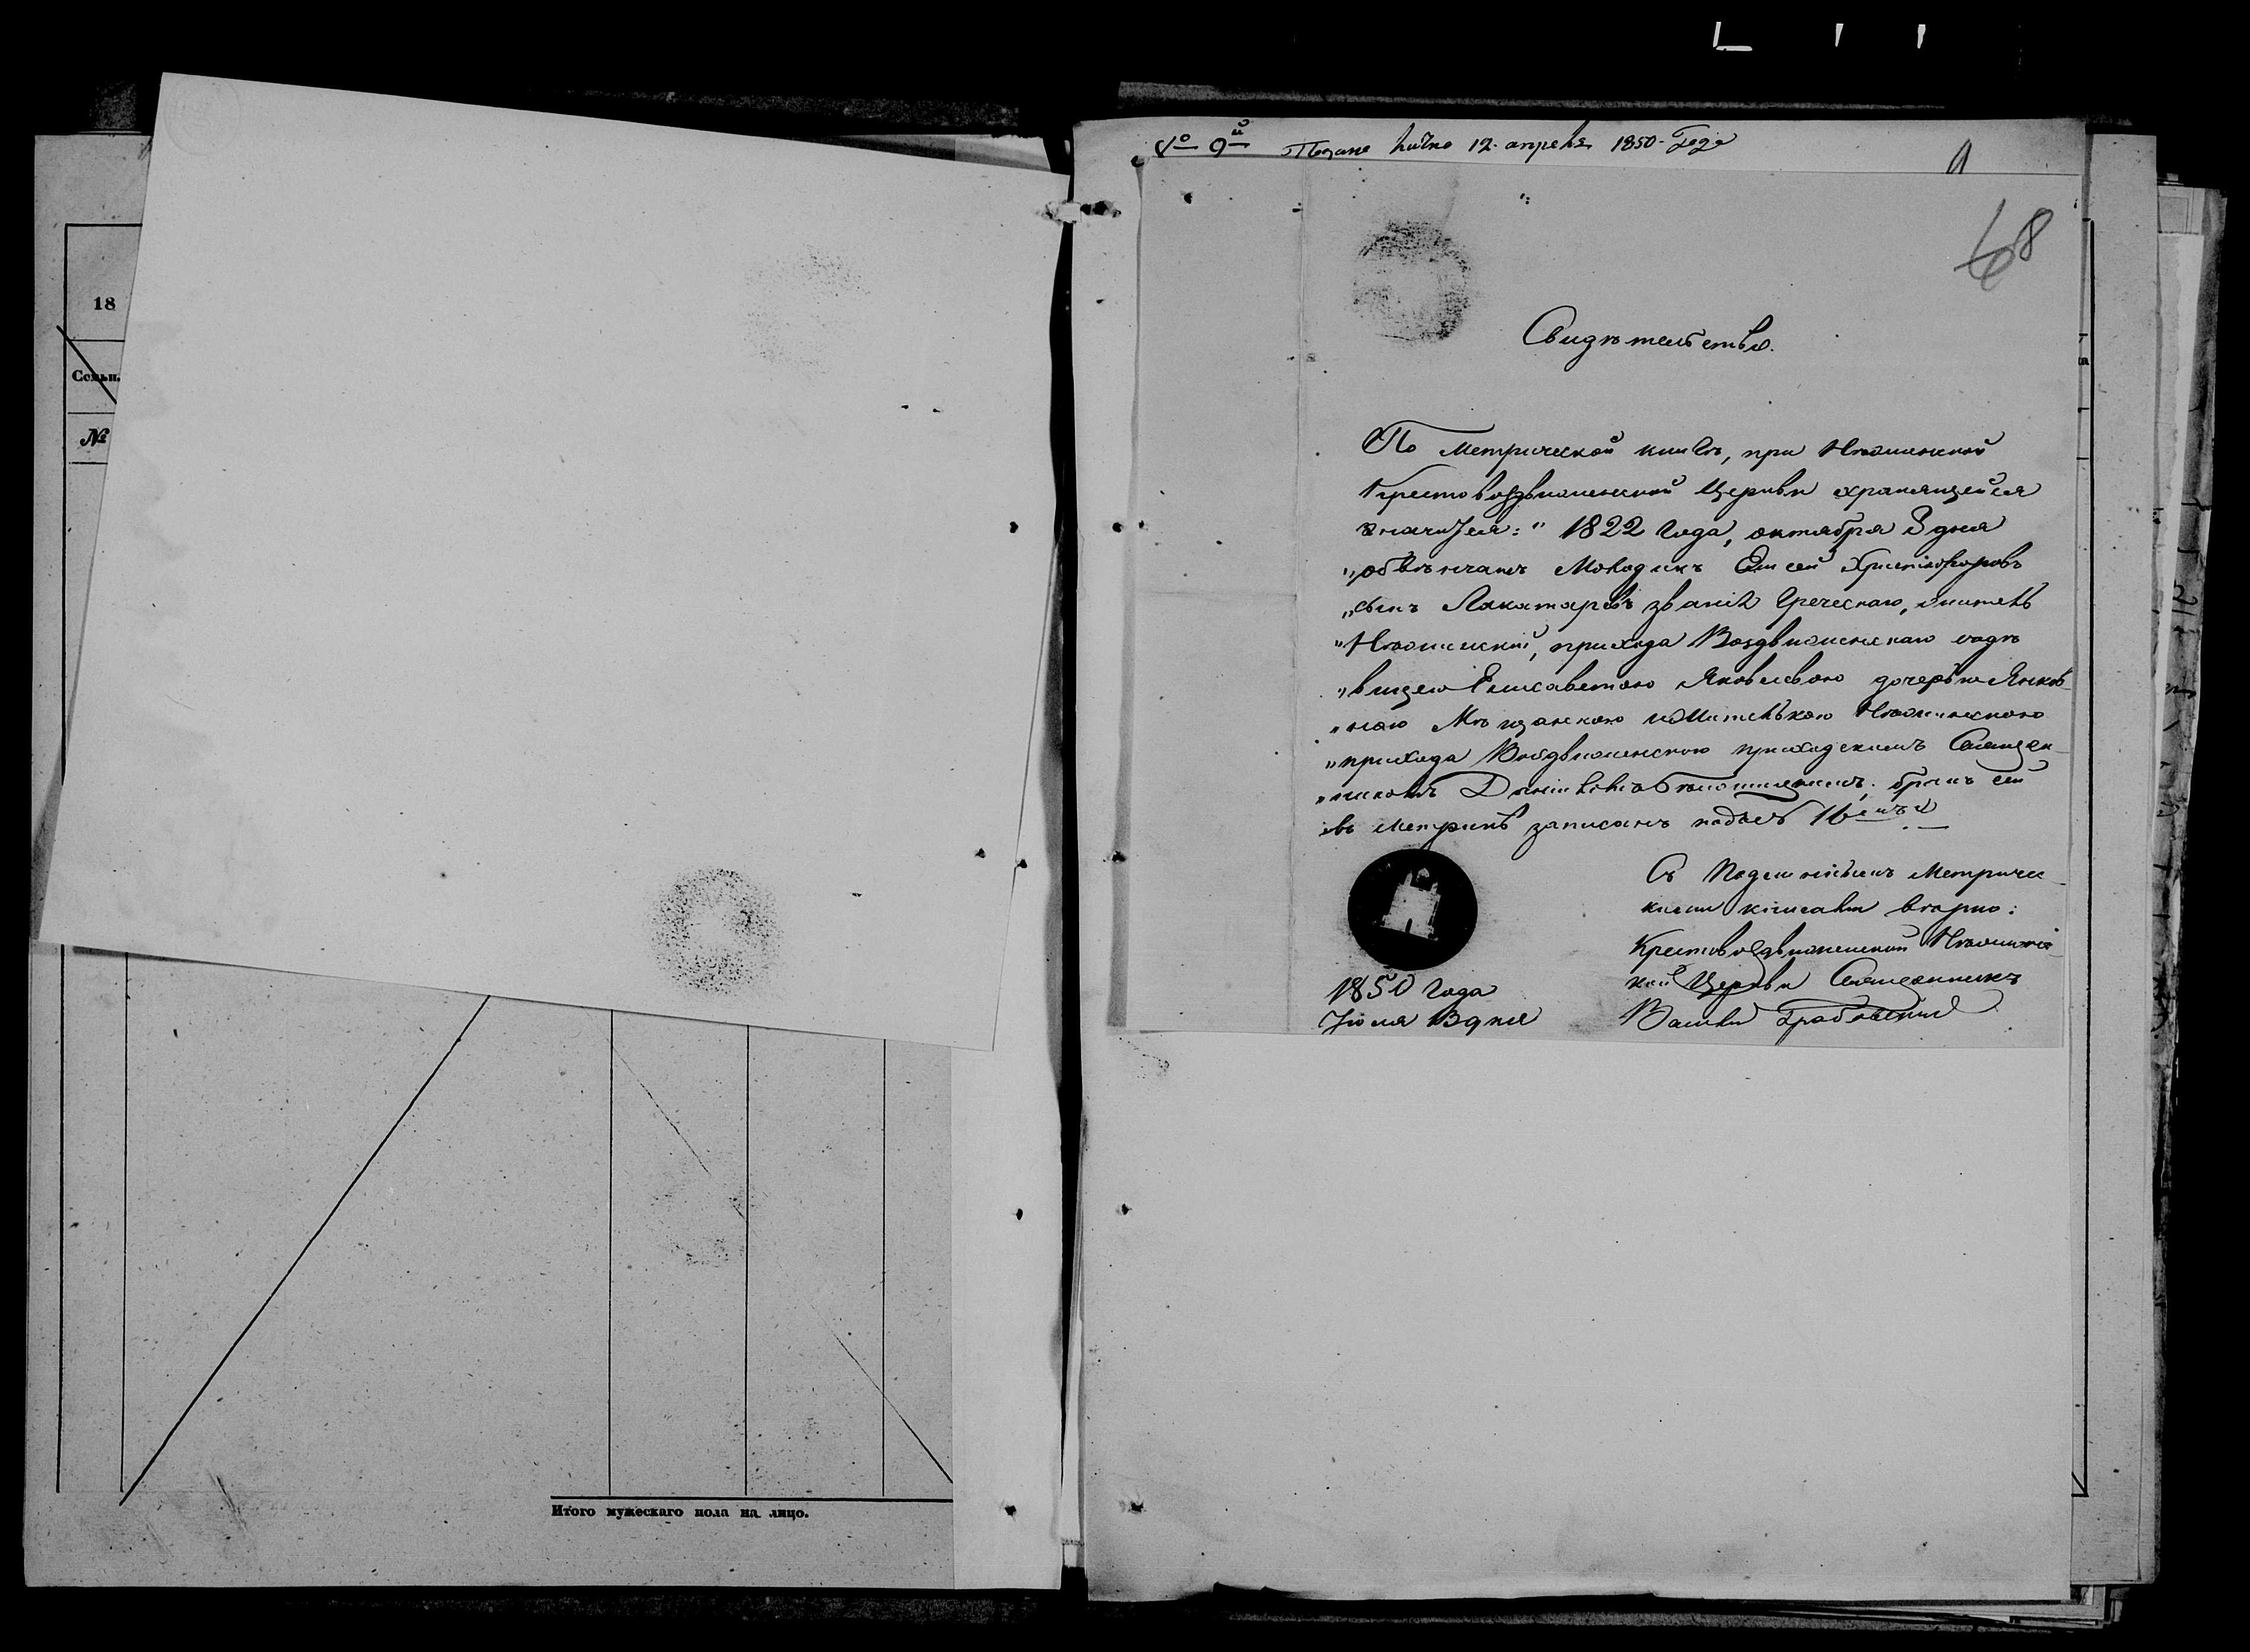 18
№
Итого мужескаго пола на лицо.
Подано лично 12. апреля 1850 Года
68
Свидѣтельство.
По Метрической книгѣ, при Нѣжинской
Крестовоздвиженской Церкви хранящейся
значится: " 1822 Года, октября 8 дня
„обвѣнчанъ Молодикъ Елисей Христофоровъ
„сынъ званія Греческаго, житель
„Нѣжинскій, прихода Воздвиженскаго съ дѣ
„вицею Елисаветою Яковлевою дочерью Янков
„ною Мѣщанскою жителькою Нѣжинскою
„прихода Воздвиженскаго приходскимъ Священ
„никомъ бракъ сей
въ Метрикѣ записанъ подъ № 16
Съ Подлиннымъ Метричес
кими книгами вѣрно:
Крестовоздвиженской Нѣжинс
кой Церкви Священникъ
Василій Грабовскій
1850 Года
Іюля 13 дня